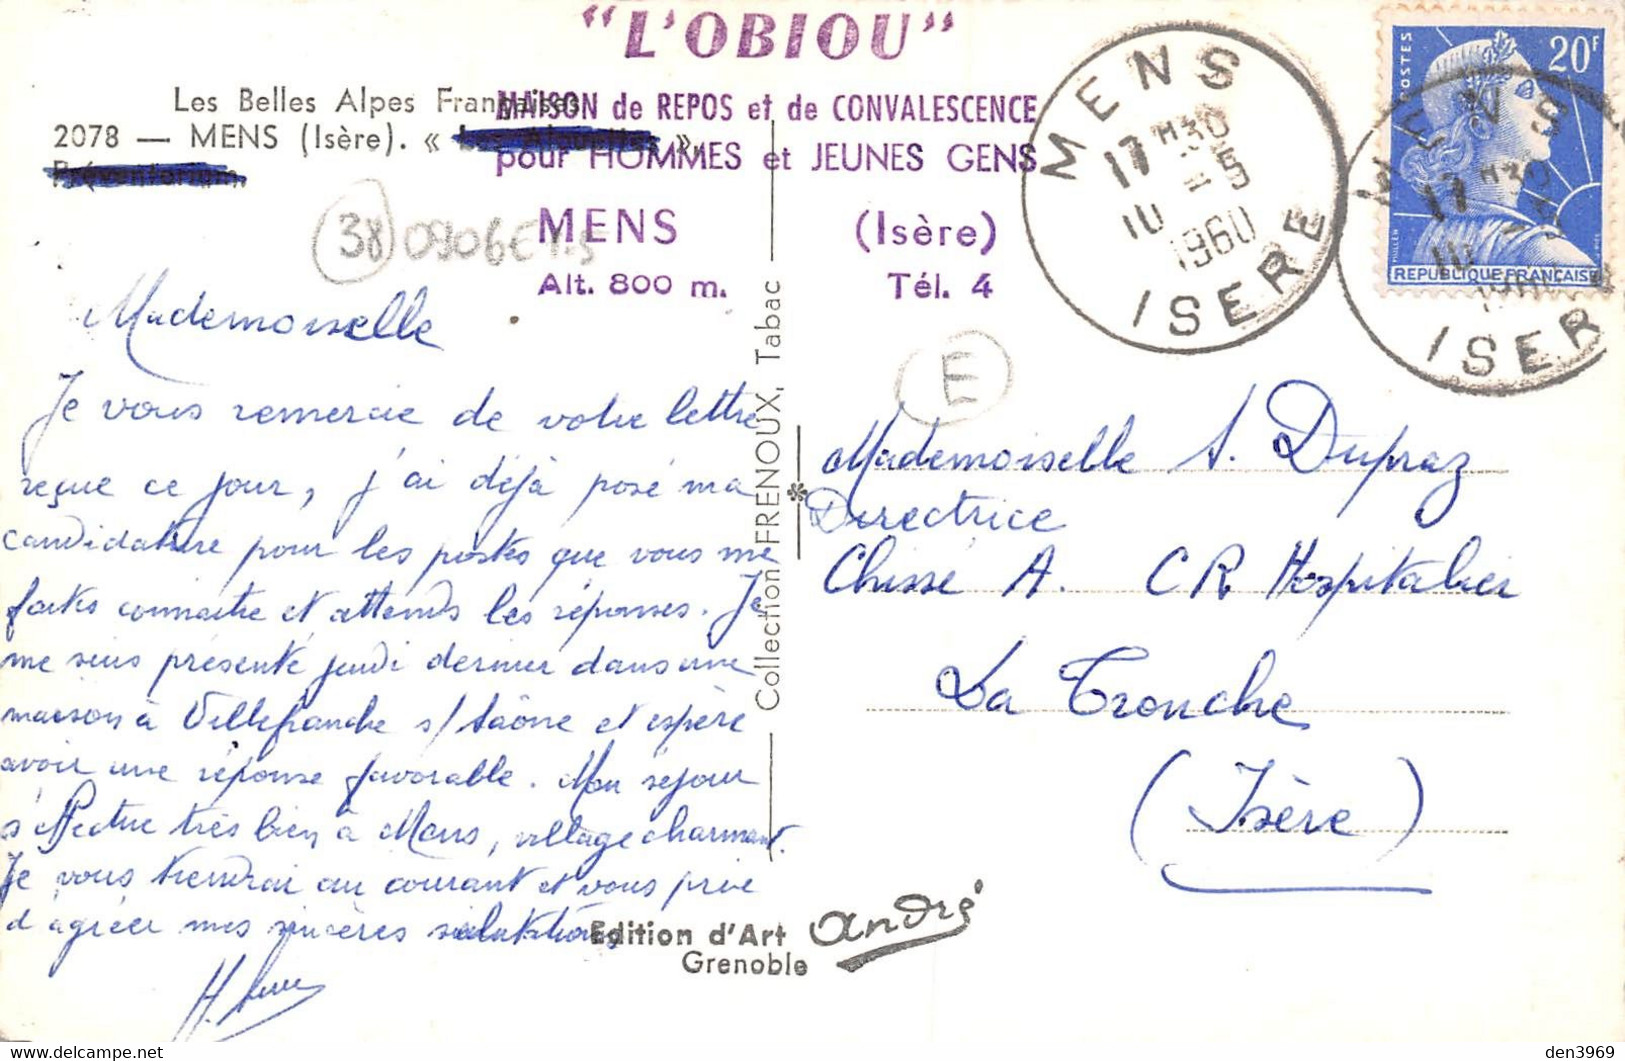 "L'OBIOU"
Les Belles Alpes Françaises
MAISON de REPOS et de CONVALESCENCE
2078 — MENS (Isère). « Les Alouettes ».
pour HOMMES et JEUNES GENS
Préventorium.
MENS (Isère)
Alt. 800 m. Tél. 4
38 0906E
MENS
17 H30
10 - 5
1960
ISERE
MENS
17 H30
10
ISERE
POSTES
20F
MULLER
REPUBLIQUE FRANÇAISE
E
Mademoiselle
Je vous remercie de votre lettre
reçue ce jour, j'ai déjà posé ma
candidature pour les postes que vous me
faites connaitre et attends les réponses. Je
me suis présenté jeudi dernier dans une
maison à Villefranche s/ Saône et espère
avoir une réponse favorable. Mon séjour
s'effectue très bien à Mens, village charmant.
Je vous tiendrai au courant et vous prie
d'agréer mes sincères salutations
Collection FRENOUX, Tabac
Mademoiselle S. Dupraz
Directrice
Chissé A. CR Hospitalier
La Tronche
(Isère)
Edition d'Art André
Grenoble
den3969